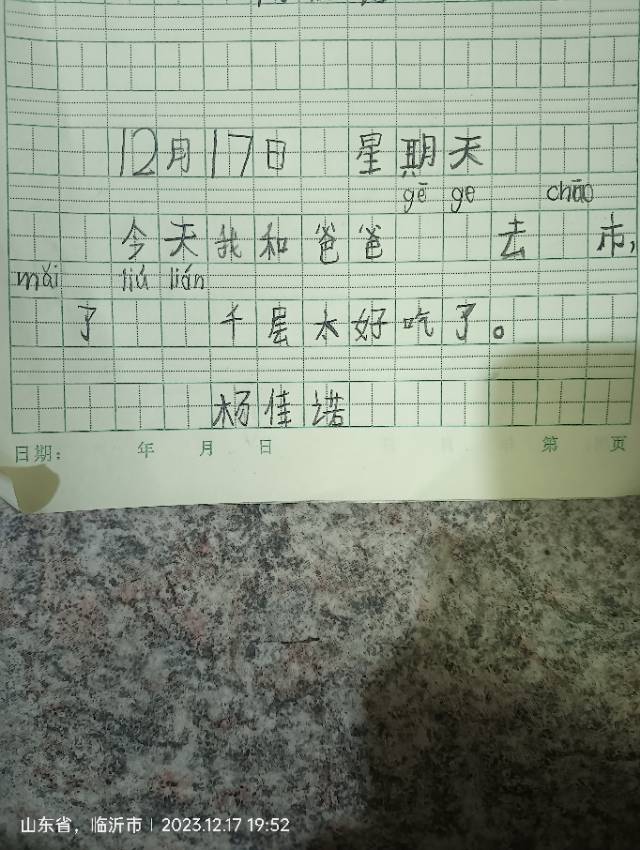 12月17日 星期天
gē ge chāo
今天我和爸爸 去 市,
mǎi liú lián
了 千层大好吃了。
杨佳诺
日期: 年 月 日 第 页
山东省，临沂市 | 2023.12.17 19:52